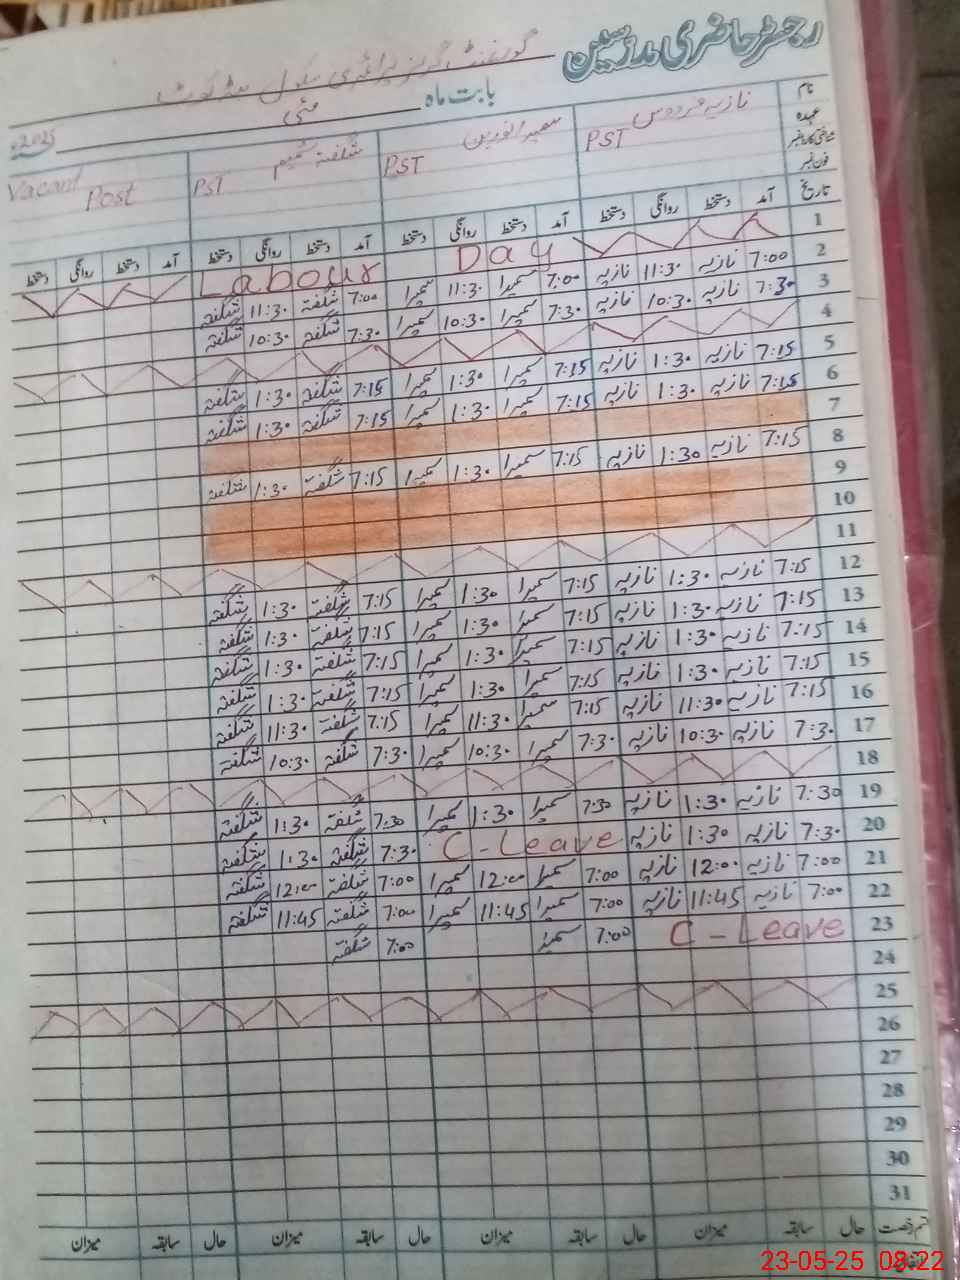 رجسٹر حاضری مدرسین
گورنمنٹ گرلز پرائمری سکول
بابت ماہ مئی 2025ء
نام نازیہ فردوس سمیرا نورین شگفتہ شمیم Vacant Post
عہدہ PST PST PST
شناختی کارڈ نمبر
فون نمبر
تاریخ آمد دستخط روانگی دستخط آمد دستخط روانگی دستخط آمد دستخط روانگی دستخط آمد دستخط روانگی دستخط
1 Labour Day
2 7:00 نازیہ 11:30 نازیہ 7:00 سمیرا 11:30 سمیرا 7:00 شگفتہ 11:30 شگفتہ
3 7:30 نازیہ 10:30 نازیہ 7:30 سمیرا 10:30 سمیرا 7:30 شگفتہ 10:30 شگفتہ
4
5 7:15 نازیہ 1:30 نازیہ 7:15 سمیرا 1:30 سمیرا 7:15 شگفتہ 1:30 شگفتہ
6 7:15 نازیہ 1:30 نازیہ 7:15 سمیرا 1:30 سمیرا 7:15 شگفتہ 1:30 شگفتہ
7
8 7:15 نازیہ 1:30 نازیہ 7:15 سمیرا 1:30 سمیرا 7:15 شگفتہ 1:30 شگفتہ
9
10
11
12 7:15 نازیہ 1:30 نازیہ 7:15 سمیرا 1:30 سمیرا 7:15 شگفتہ 1:30 شگفتہ
13 7:15 نازیہ 1:30 نازیہ 7:15 سمیرا 1:30 سمیرا 7:15 شگفتہ 1:30 شگفتہ
14 7:15 نازیہ 1:30 نازیہ 7:15 سمیرا 1:30 سمیرا 7:15 شگفتہ 1:30 شگفتہ
15 7:15 نازیہ 1:30 نازیہ 7:15 سمیرا 1:30 سمیرا 7:15 شگفتہ 1:30 شگفتہ
16 7:15 نازیہ 11:30 نازیہ 7:15 سمیرا 11:30 سمیرا 7:15 شگفتہ 11:30 شگفتہ
17 7:30 نازیہ 10:30 نازیہ 7:30 سمیرا 10:30 سمیرا 7:30 شگفتہ 10:30 شگفتہ
18
19 7:30 نازیہ 1:30 نازیہ 7:30 سمیرا 1:30 سمیرا 7:30 شگفتہ 1:30 شگفتہ
20 7:30 نازیہ 1:30 نازیہ C - Leave 7:30 شگفتہ 1:30 شگفتہ
21 7:00 نازیہ 12:00 نازیہ 7:00 سمیرا 12:00 سمیرا 7:00 شگفتہ 12:00 شگفتہ
22 7:00 نازیہ 11:45 نازیہ 7:00 سمیرا 11:45 سمیرا 7:00 شگفتہ 11:45 شگفتہ
23 C - Leave 7:00 سمیرا 7:00 شگفتہ
24
25
26
27
28
29
30
31
قسم رخصت حال سابقہ میزان حال سابقہ میزان حال سابقہ میزان حال سابقہ میزان
23-05-25 08:22